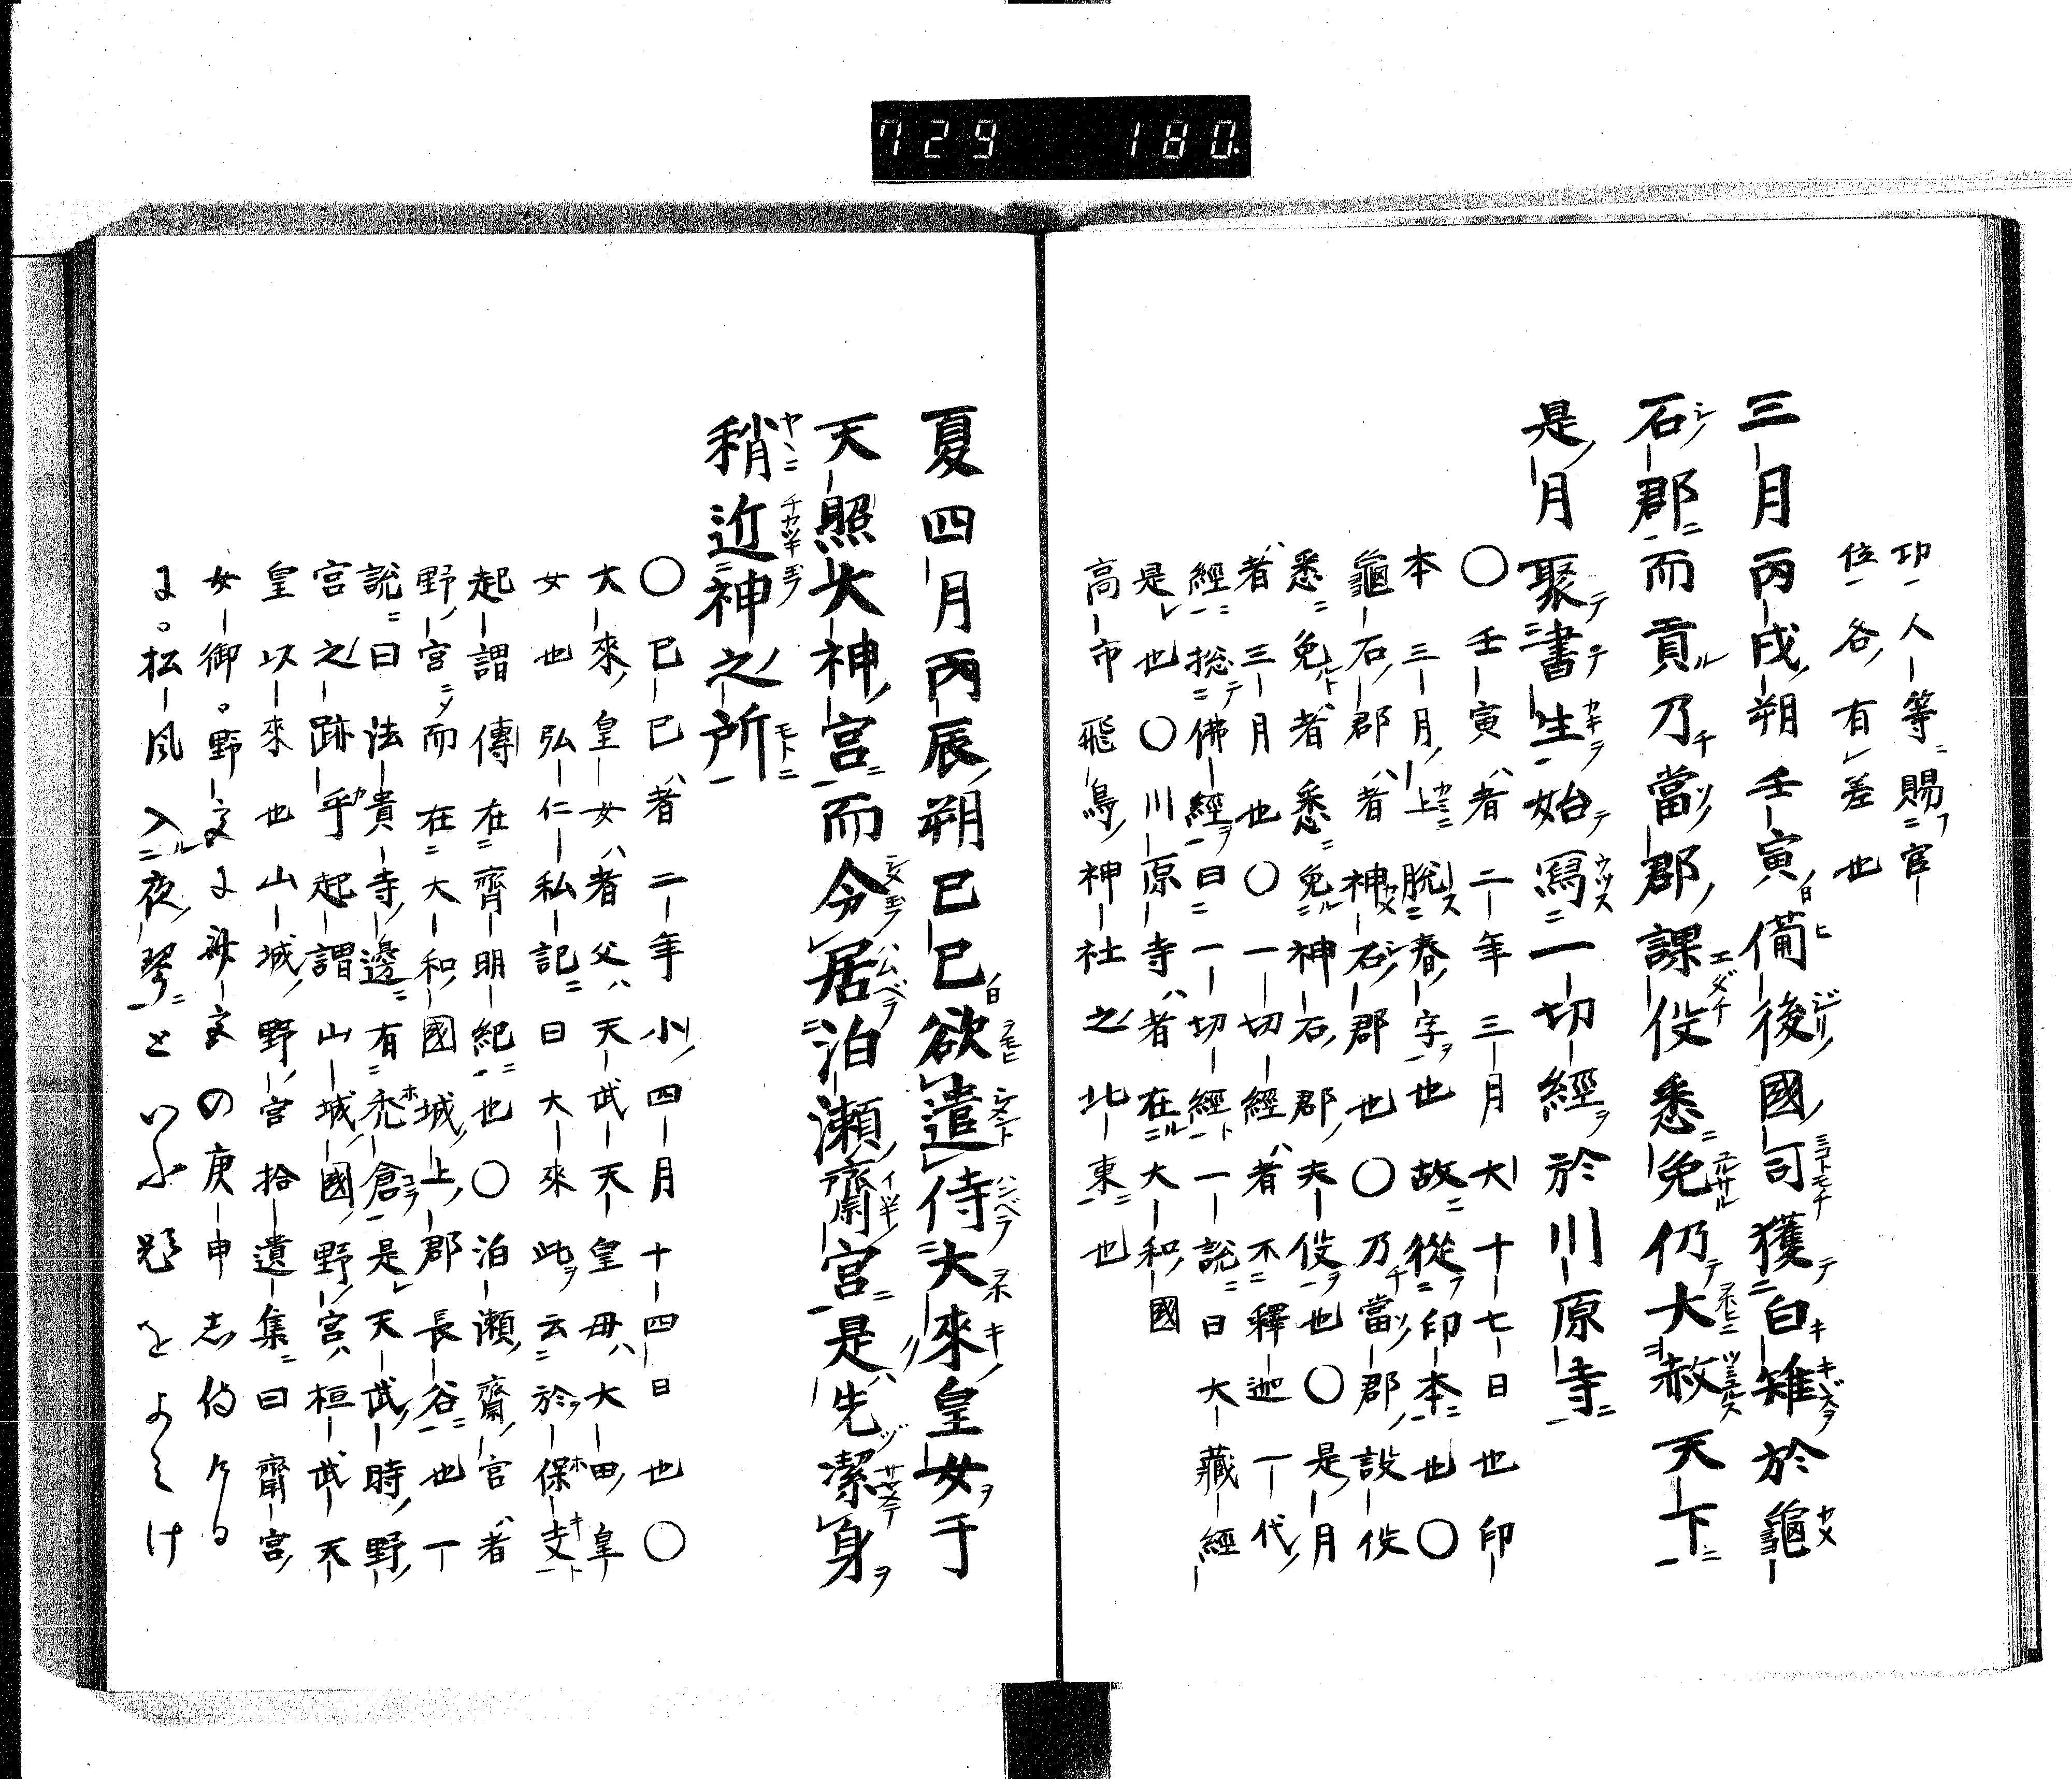 729 180
功人等賜官
位各有差也
三月丙戌朔壬寅備後國司獲白雉於龜
石郡而貢乃當郡課役悉免仍大赦天下
是月聚書生始寫一切經於川原寺
〇壬寅者二年三月大十七日也印
本三月上脫春字也故從印本也〇
龜石郡者神石郡也〇乃當郡設役
悉免者悉免神石郡夫役也〇是月
者三月也〇一切經者不釋迦一代
經総佛經曰一切經一說曰大藏經
是也〇川原寺者在大和國
高市飛鳥神社之北東也
夏四月丙辰朔己巳欲遣侍大來皇女于
天照大神宮而令居泊瀬齋宮是先潔身
稍近神之所
〇己巳者二年小四月十四日也〇
大來皇女者父天武天皇母大田皇
女也弘仁私記曰大來此云於保支
起謂傳在齊明紀也〇泊瀬齋宮者
野宮而在大和國城上郡長谷也一
說曰法貴寺邊有禿倉是天武時野
宮之跡乎起謂山城國野宮桓武天
皇以來也山城野宮拾遺集曰齋宮
女御野宮の庚申志侍ける
に松風入夜琴といふ題をよみけ